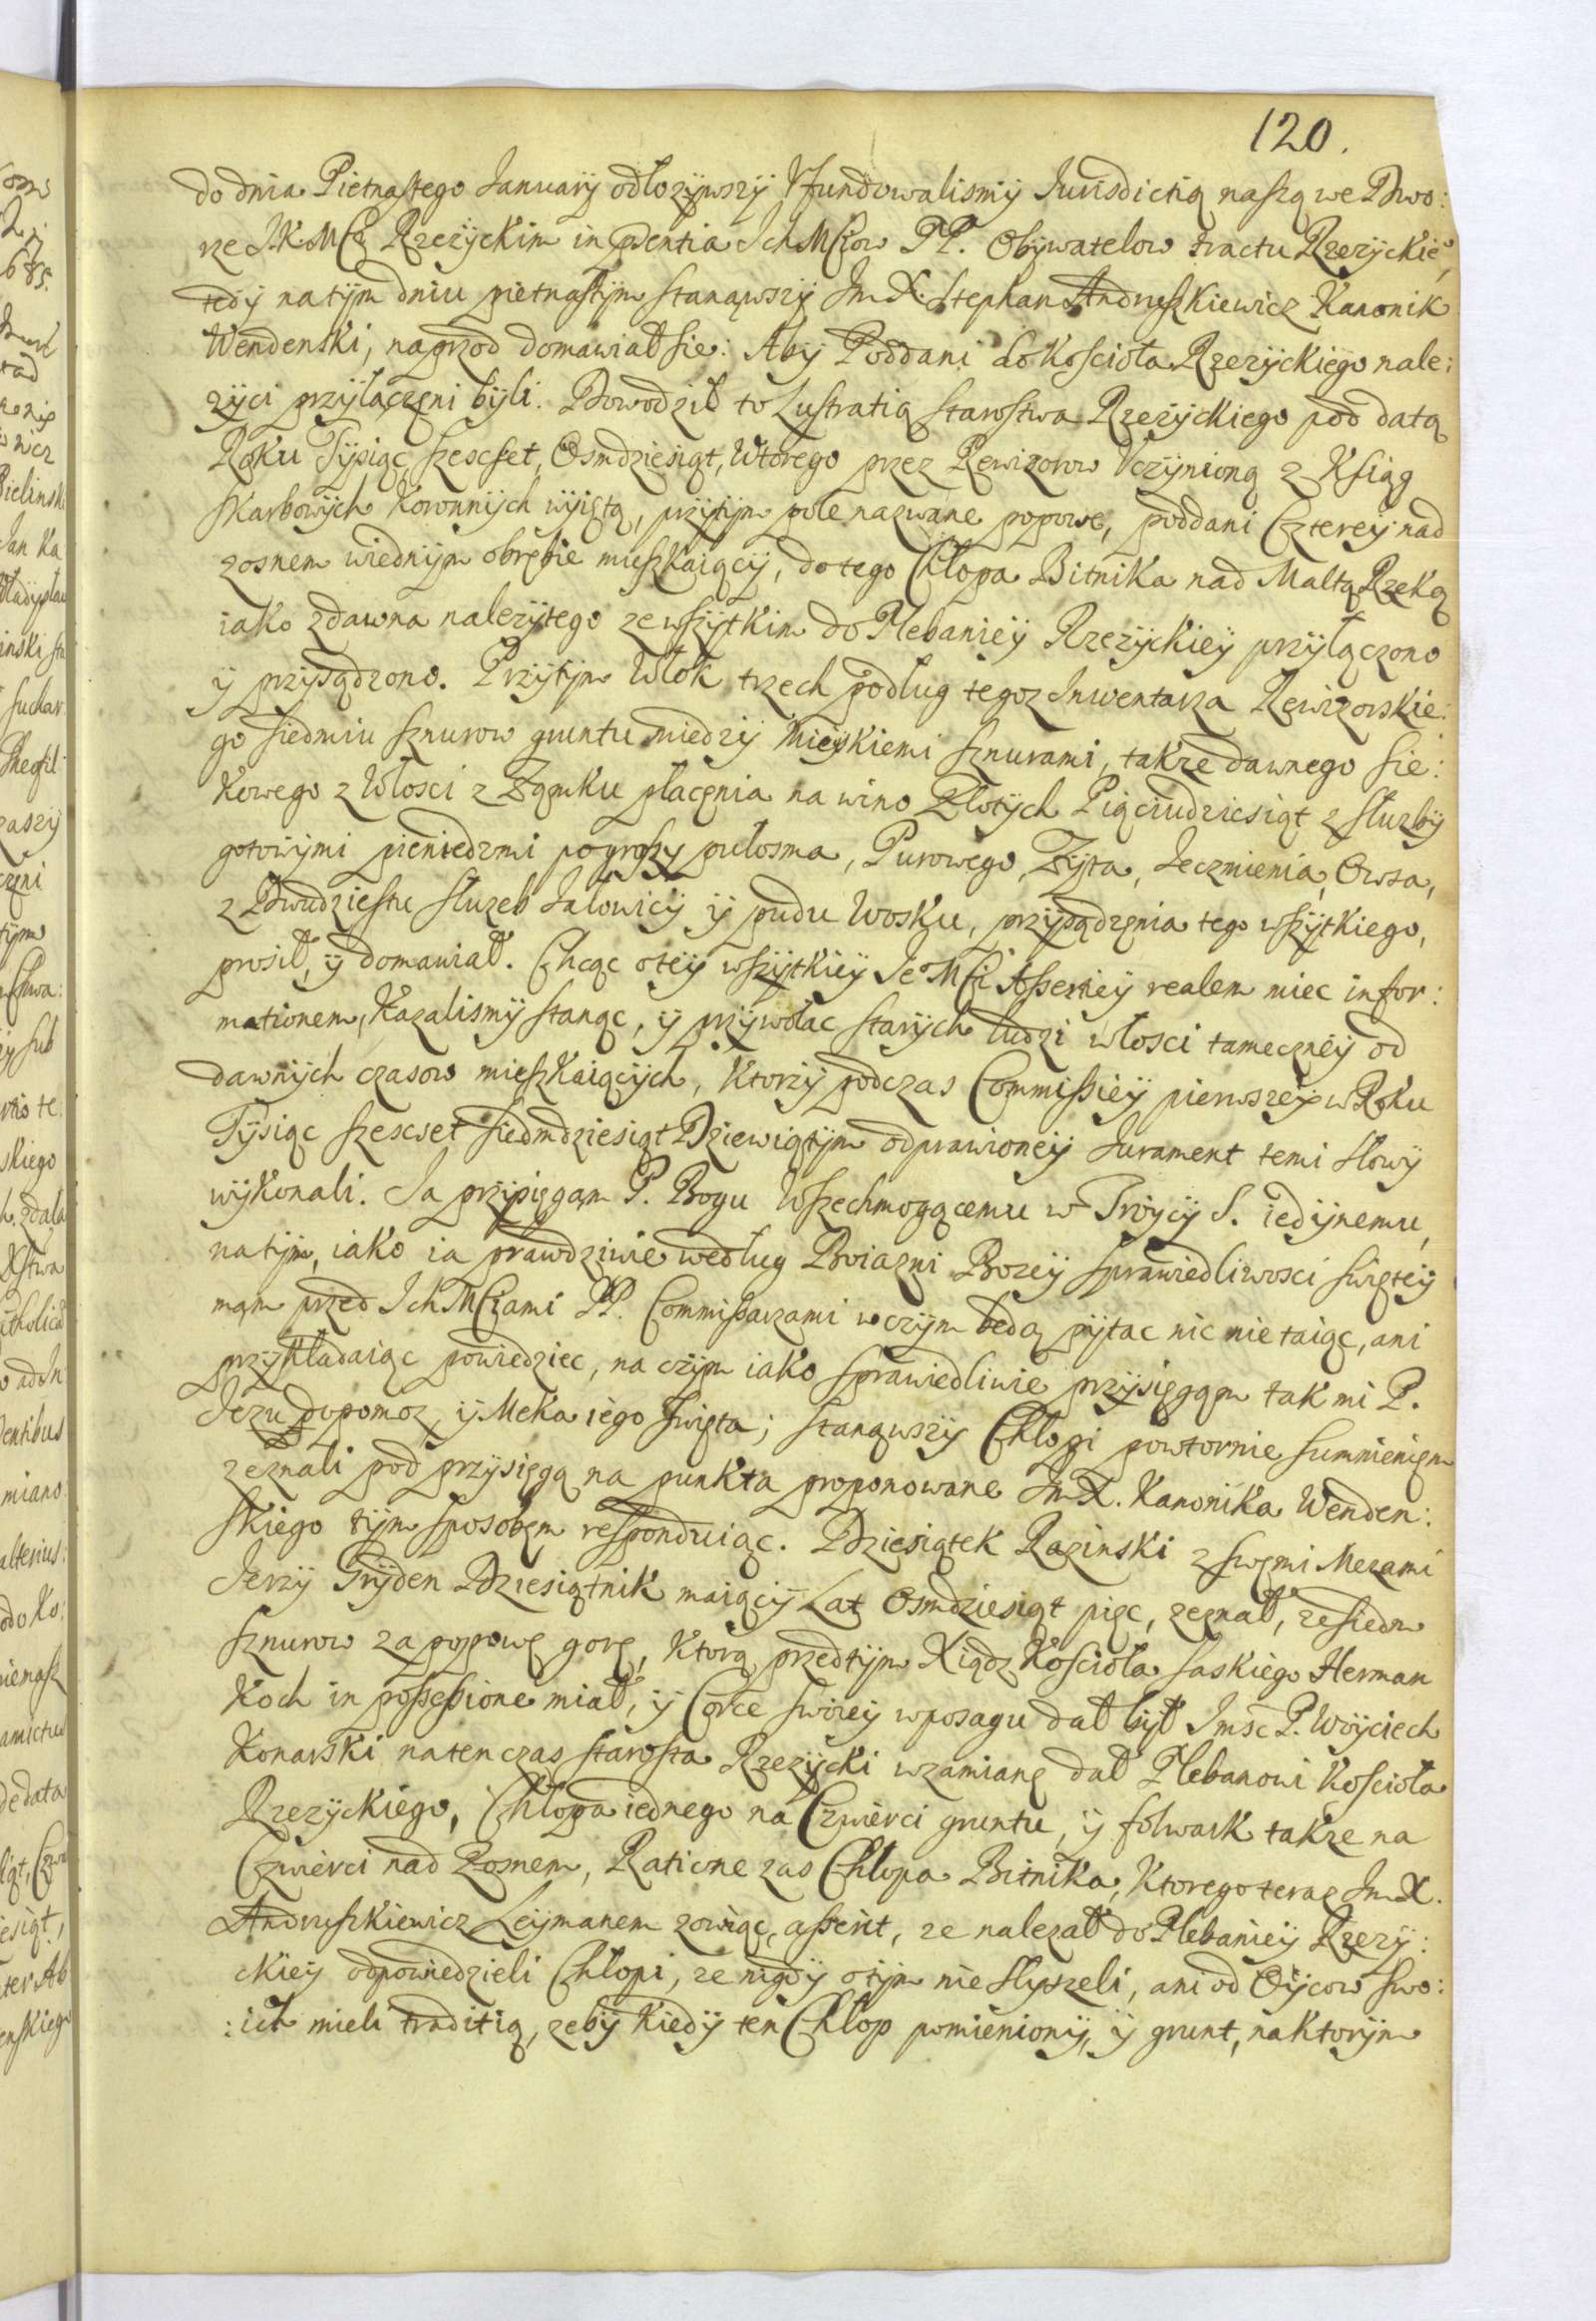 120.
do dnia Pietnastego Januarÿ odłozÿwszÿ Vfundowalismÿ Jurisdictią naszą we Dwo:
rze J.K.Mći Rzezÿckim in pdentia Ich Mćiow PP. Obÿwatelow tractu Rzezÿckie°,
tedÿ na tÿm dniu pietnastÿm stanąwszÿ Im X. Stephan Andruszkiewicz Kanonik
Wendenski, naprzod domawiał sie: Abÿ Poddani do Kosciola Rzezÿckiego nale:
zÿci przÿłączeni bÿli. Dowodził to Lustratią starostwa Rzezÿckiego pod datą
Roku Tÿsiąc szescset, Osmdziesiąt, Wtorego przez Rewizorow Vczÿnioną z Ksiąg
skarbowÿch Koronnÿch wÿiętą, przÿtÿm pole nazwane popowe, poddani Czterej nad
zosnem wiednÿm obrębie mieszkaiącÿ, do tego Chłopa Bitnika nad Maltą Rzeką
iako zdawna nalezÿtego ze wszÿtkim do Plebaniey Rzezÿckieÿ przÿłączono
ÿ przÿsądzono. Przÿtÿm Włok trzech podług tegoz Inwentarza Rewizorskie:
go siedmiu sznurow gruntu miedzÿ Mieÿskiemi sznurami, takze dawnego sie:
kowego z Włosci z Zamku płacenia na wino Złotÿch Pięciudziesiąt z służbÿ
gotowÿmi pieniedzmi po groszy pułosma, Purowego, Zÿta, Jeczmienia, Owsa,
z Dwudziestu słuzeb Jałowicÿ ÿ pudu Wosku, przÿsądzenia tego wszÿtkiego,
prosił, ÿ domawiał. Chcąc oteÿ wszÿtkieÿ Je Mći Asserieÿ realem miec infor:
mationem, Kazalismÿ stanąc, ÿ przÿwołac starÿch ludzi włosci tameczneÿ od
dawnÿch czasow mieszkaiącÿch, ktorzÿ podczas Commissieÿ pierwszeÿ w Roku
Tÿsiąc szescset siedmdziesiąt Dziewiątÿm odprawioneÿ Jurament temi słowÿ
wÿkonali. Ja przÿsięgam P. Bogu Wszechmogącemu w Troÿcÿ S. iedÿnemu,
na tÿm, iako ia prawdziwie według Boiazni Bozeÿ sprawiedliwosci swięteÿ
mam przed Ich Mćiami PP. Commissarzami w czÿm bedą pÿtac nic nie taiąc, ani
przÿkładaiąc powiedziec, na czÿm iako sprawiedliwie przÿsięgam tak mi P.
Jezu dopomoz, ÿ Meka iego swięta; stanąwszÿ Chłopi powtornie summieniem
zeznali pod przÿsięgą na punkta proponowane Im X. Kanonika Wenden:
skiego tÿm sposobem responduiąc. Dziesiątek Razinski z swemi Mezami
Jerzÿ Grÿden Dziesiątnik maiącÿ Lat Osmdziesiąt pięc, zeznał, ze siedm
sznurow za popową gorą, ktorą przedtÿm Xiądz Kosciola saskiego Herman
Koch in possessione miał, ÿ Corce swoieÿ w posagu dał bÿł Imsc P. Woÿciech
Konarski na ten czas starosta Rzezÿcki w zamianę dał Plebanowi Kosciola
Rzezÿckiego, Chłopa iednego na Czwierci gruntu, ÿ folwark takze na
Czwierci nad Zosnem, Ratione zas Chłopa Bitnika, ktorego teraz Im X.
Andruszkiewicz Leÿmanem zowiąc, asserit, ze nalezał do Plebanieÿ Rzezÿ:
ckieÿ odpowiedzieli Chłopi, ze nigdÿ o tÿm nie słyszeli, ani od Oÿcow swo:
:ich mieli traditią, zebÿ kiedÿ ten Chłop pomienionÿ, ÿ grunt, na ktorÿm